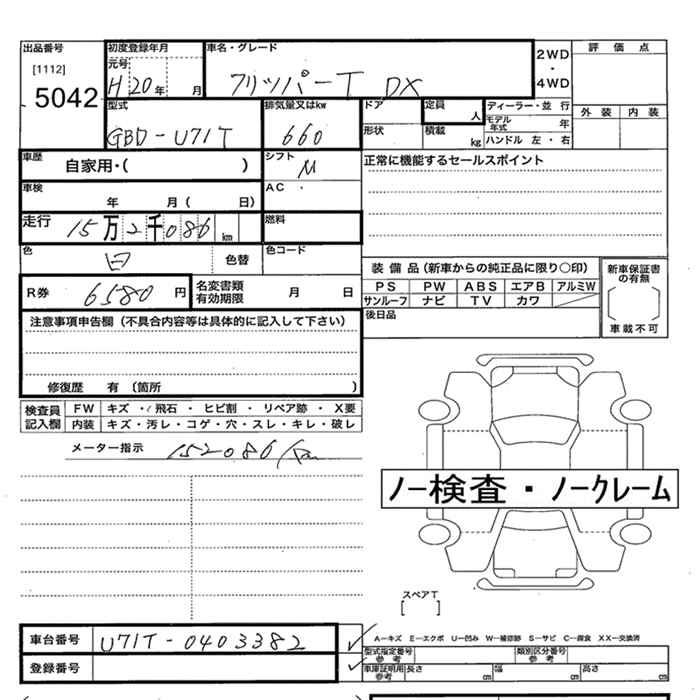 出品番号 初度登録年月 車名・グレード 2WD・4WD 評価点
[1112] 元号
5042 H 20年 月 クリッパーT DX
型式 排気量又はkw ドア 定員 人 ディーラー・並行 外装 内装
GBD-U71T 660 形状 積載 kg モデル年式 年
ハンドル 左・右
車歴 自家用・( ) シフト M 正常に機能するセールスポイント
車検 年 月( 日) AC ・
走行 15万2千086km 燃料
色 白 色替 色コード
装備品(新車からの純正品に限り○印) 新車保証書の有無
R券 6580円 名変書類有効期限 月 日 PS PW ABS エアB アルミW
サンルーフ ナビ TV カワ
注意事項申告欄(不具合内容等は具体的に記入して下さい) 後日品 車載不可
修復歴 有(箇所 )
検査員記入欄 FW キズ・飛石・ヒビ割・リペア跡・X要
内装 キズ・汚レ・コゲ・穴・スレ・キレ・破レ
メーター指示 152086km
ノー検査・ノークレーム
スペアT
[ ]
車台番号 U71T-0403382 A―キズ E―エクボ U―凹み W―補修跡 S―サビ C―腐食 XX―交換済
型式指定番号 参考 類別区分番号 参考
登録番号 車庫証明用参考 長さ cm 幅 cm 高さ cm